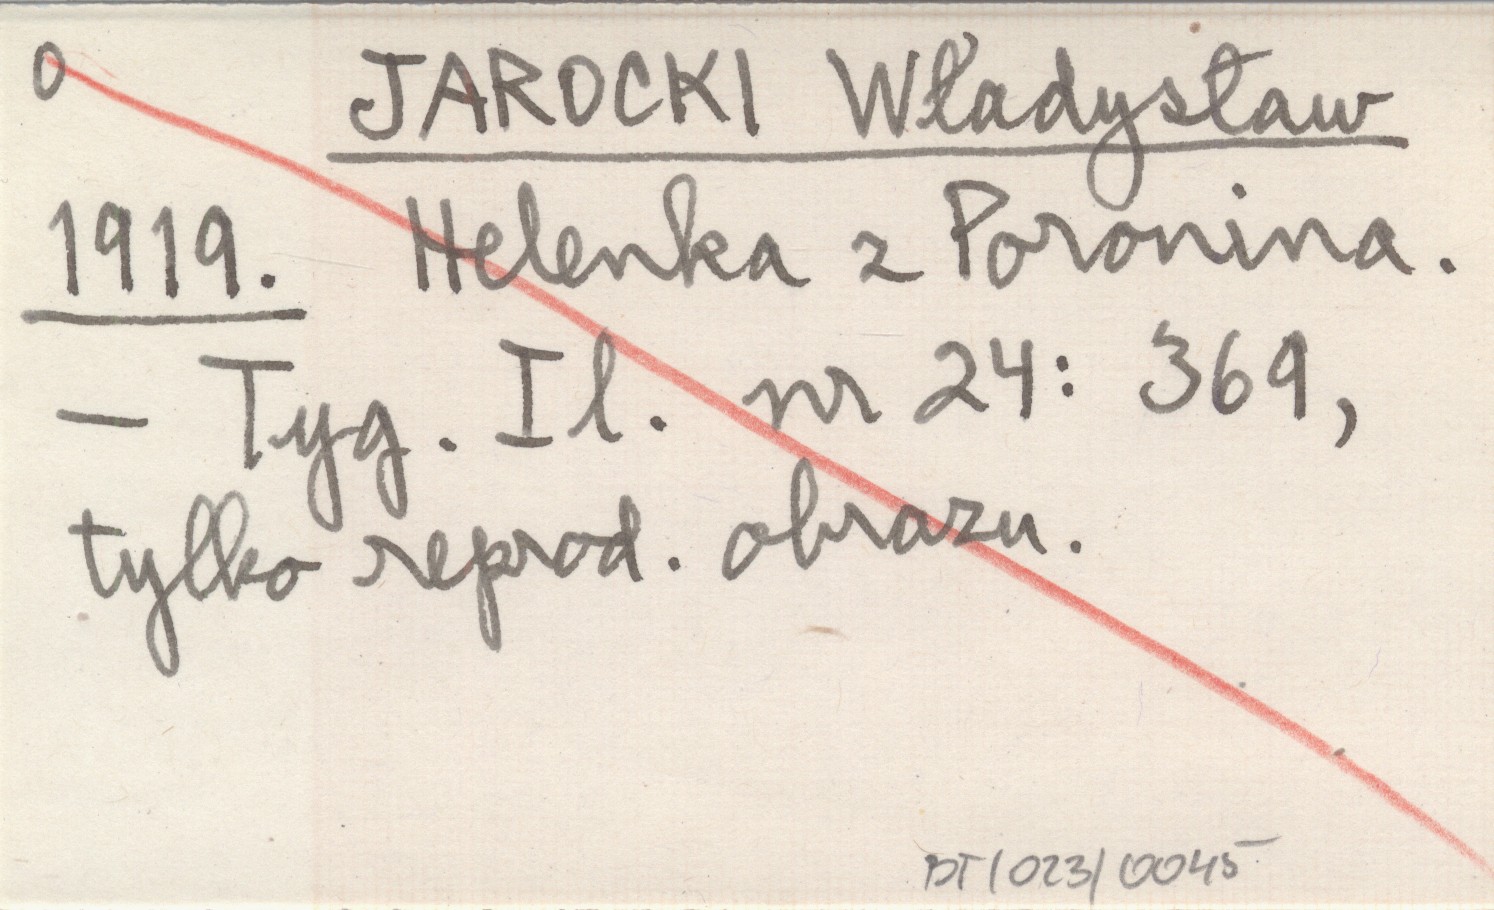 O JAROCKI Władysław
1919. Helenka z Poronina.
— Tyg. Il. nr 24: 369,
tylko reprod. obrazu.
DT/023/0045